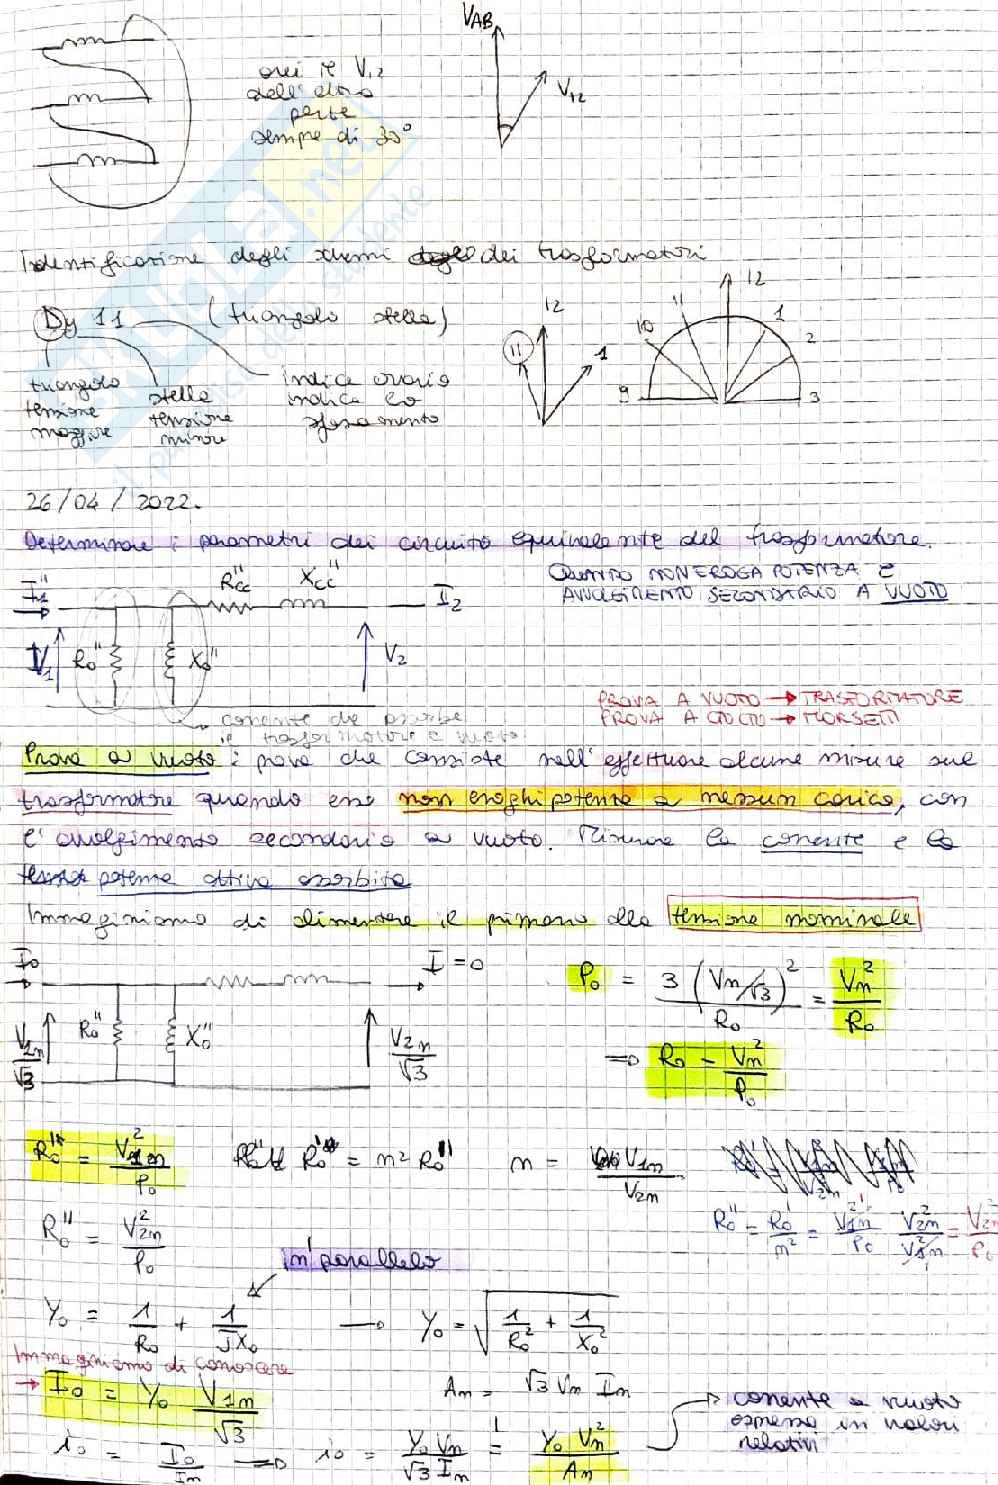 V_AB
V_12
dell'altra
parte
sempre di 30°
Identificazione degli schemi dei trasformatori
Dy 11 (triangolo stella)
triangolo
tensione
maggiore
stella
tensione
minore
indice orario
indica lo
sfasamento
12
11
1
12
11
10
9
1
2
3
26/04/2022.
Determinare i parametri del circuito equivalente del trasformatore.
QUANDO NON EROGA POTENZA È
AVVOLGIMENTO SECONDARIO A VUOTO
I_1'' R_cc'' X_cc'' I_2
V_1 R_0'' X_0'' V_2
corrente che assorbe
il trasformatore a vuoto
PROVA A VUOTO → TRASFORMATORE
PROVA A CTO CTO → MORSETTI
Prova a vuoto: prova che consiste nell'effettuare alcune misure sul
trasformatore quando esso non eroghi potenza a nessun carico, con
l'avvolgimento secondario a vuoto. Misura la corrente e la
potenza attiva assorbita
Immaginiamo di alimentare il primario alla tensione nominale
I_0 I=0
V_2n/√3 R_0'' X_0'' V_2n/√3
P_0 = 3(V_n/√3)^2/R_0 = V_n^2/R_0
⇒ R_0 = V_n^2/P_0
R_0' = V_1n^2/P_0 R_0' = n^2 R_0'' n = V_1n/V_2n
R_0'' = R_0'/n^2 = V_1n^2/P_0 V_2n^2/V_1n^2 = V_2n^2/P_0
R_0'' = V_2n^2/P_0
In parallelo
Y_0 = 1/R_0 + 1/jX_0 → Y_0 = √(1/R_0^2 + 1/X_0^2)
Immaginiamo di conoscere
→ I_0 = Y_0 V_1n/√3
A_n = √3 V_n I_n
corrente a vuoto
espressa in valori
relativi
i_0 = I_0/I_n ⇒ i_0 = Y_0 V_n/√3 I_n = Y_0 V_n^2/A_n